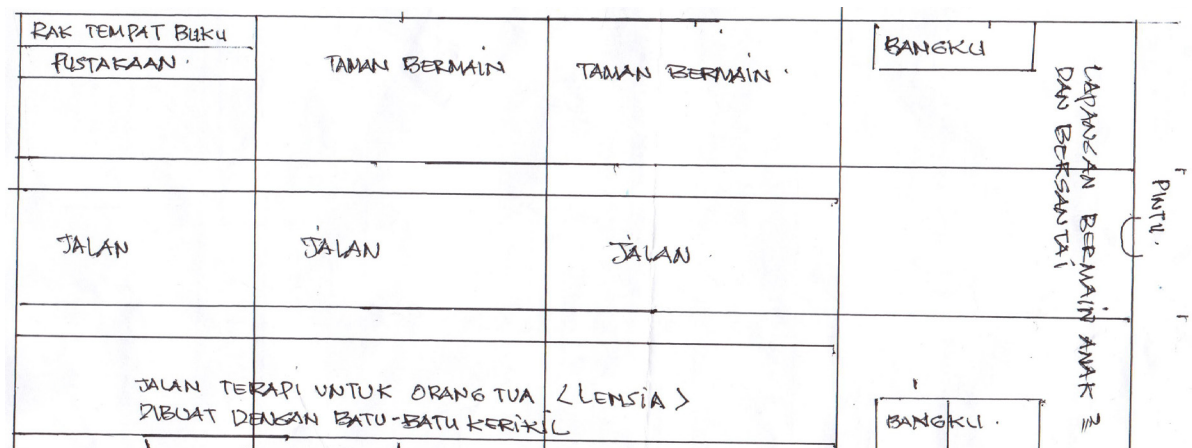 RAK TEMPAT BUKU
PUSTAKAAN.
TAMAN BERMAIN
TAMAN BERMAIN.
BANGKU
LAPANGAN BERMAIN ANAK ²
DAN BERSANTAI
PINTU.
JALAN
JALAN
JALAN.
JALAN TERAPI UNTUK ORANG TUA <LENSIA>
DIBUAT DENGAN BATU-BATU KERIKIL
BANGKU.